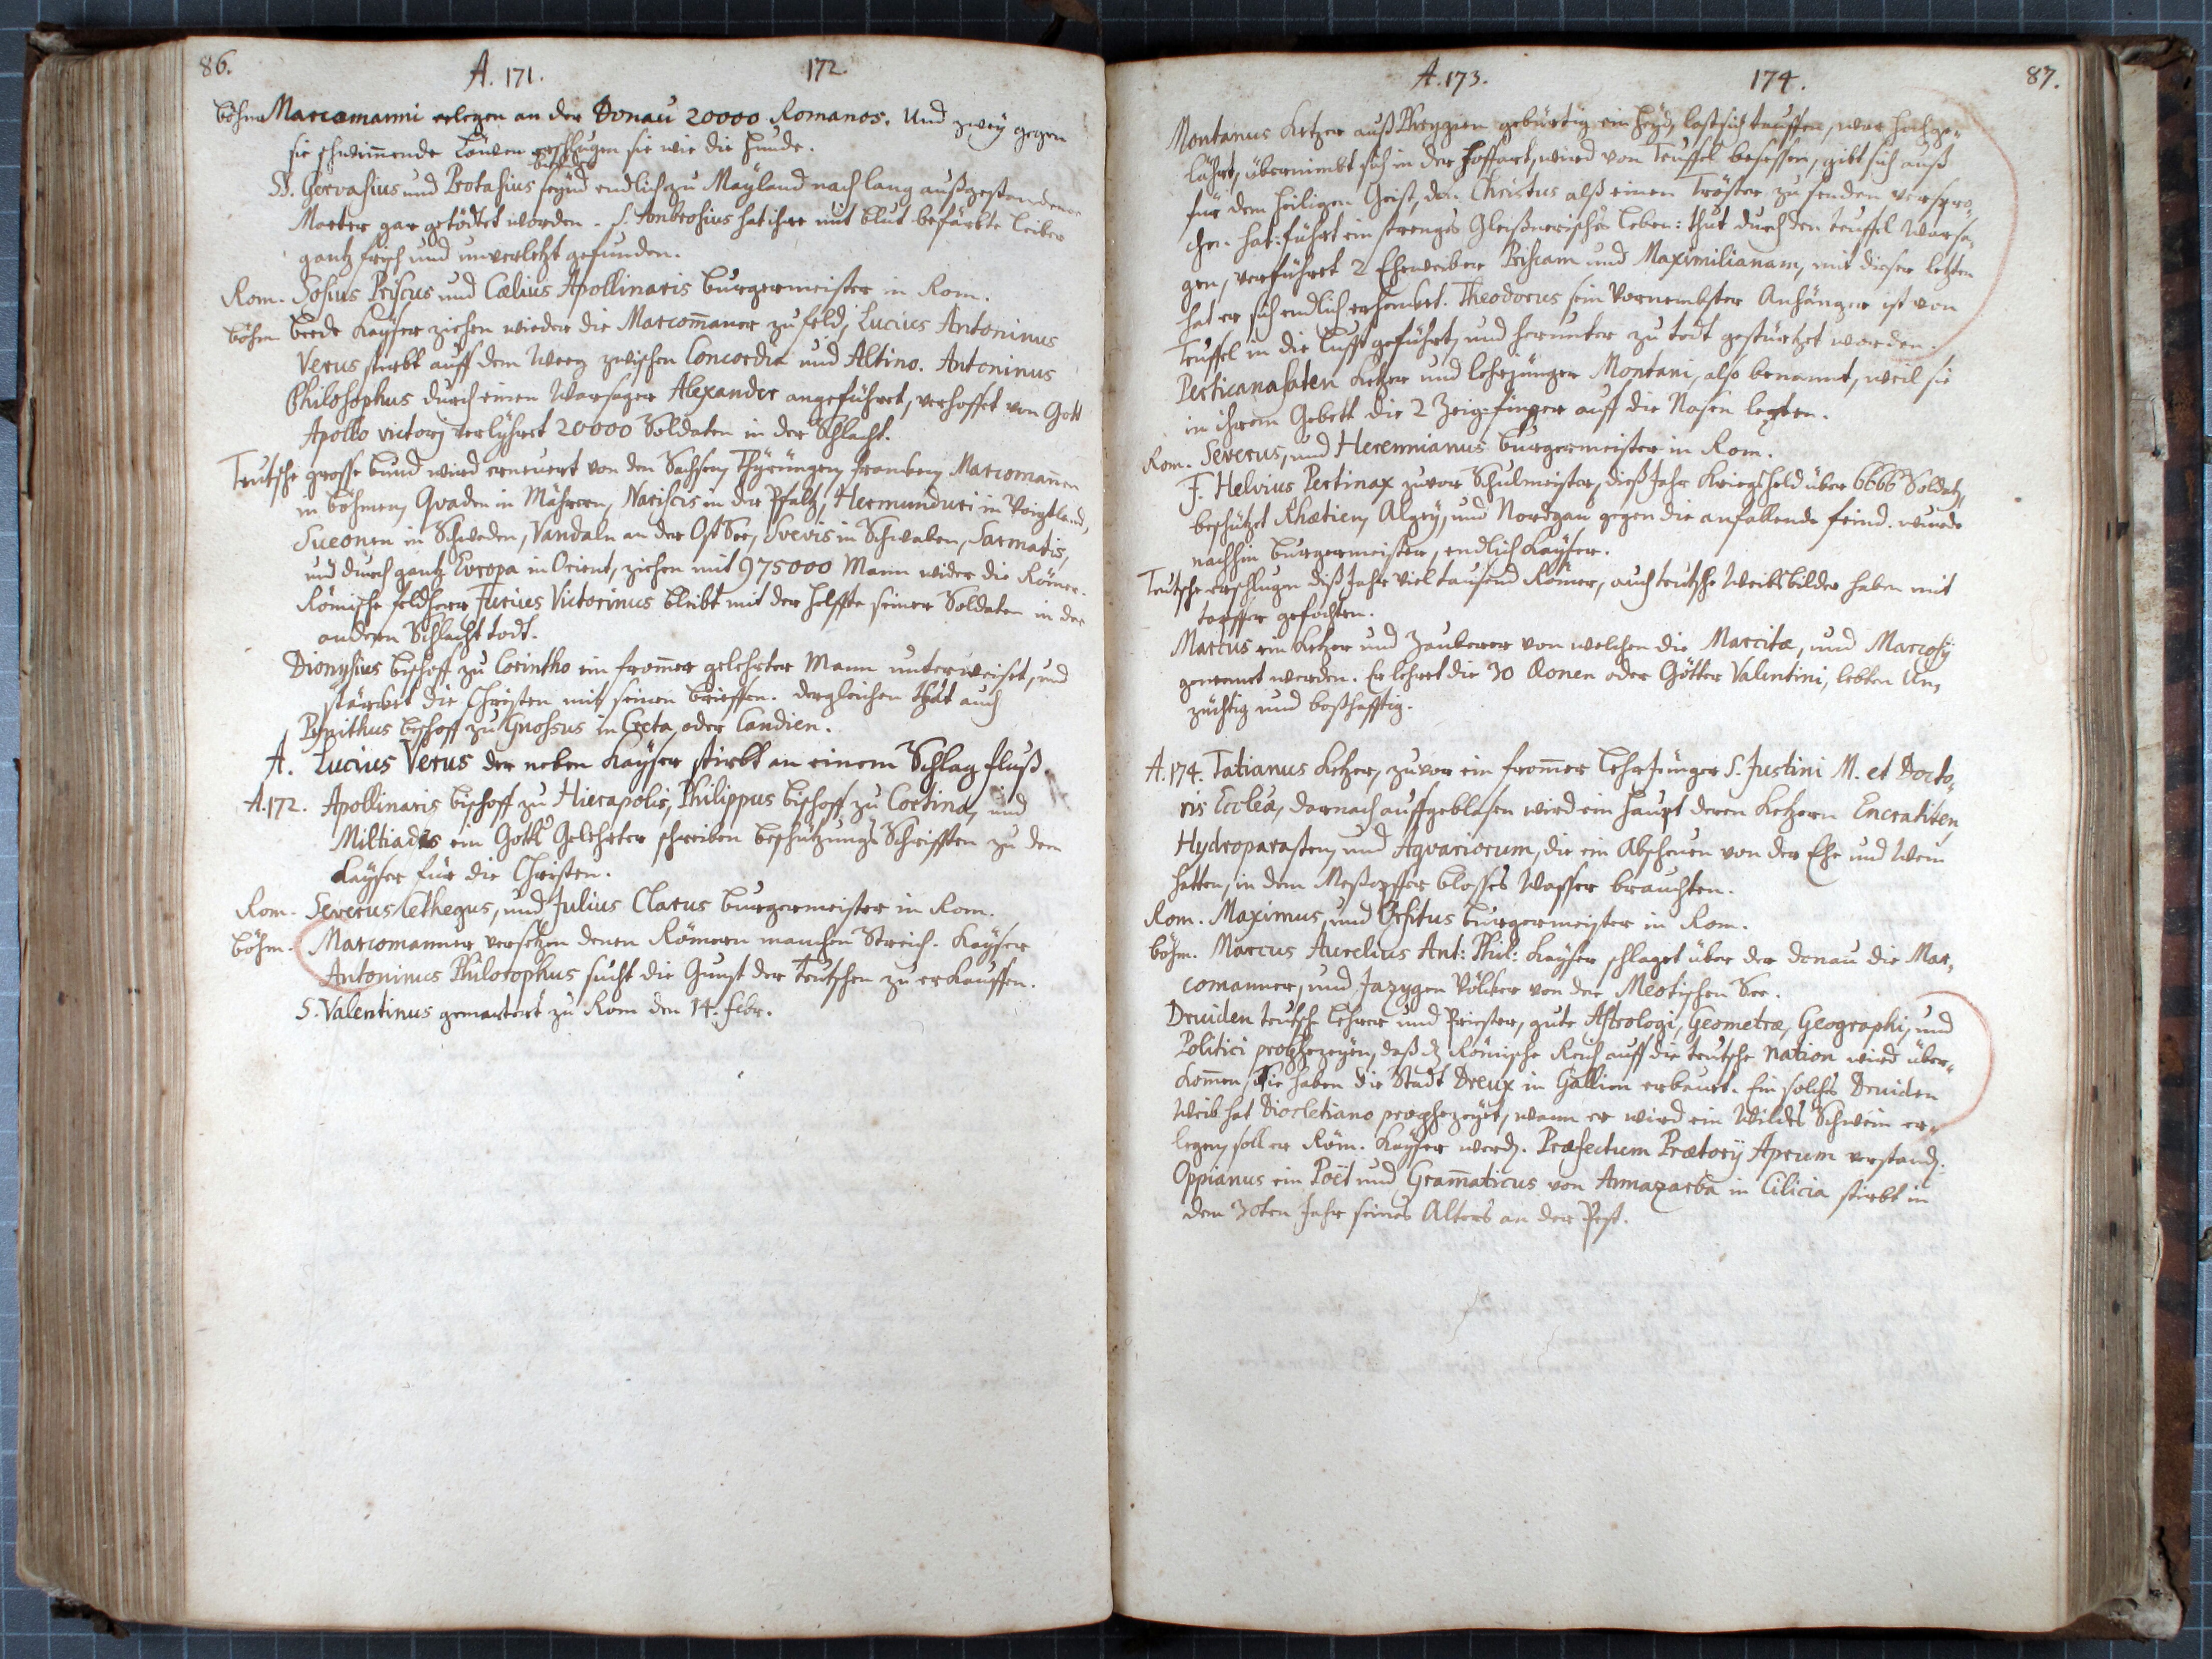 86.
A. 171. 172.
böhm Marcomanni erlegen an der Donau 20000 Romanos. Und zwey gegen
sie schwimmende Löwen erschlugen sie wie die Hunde.
brüder
SS. Gervasius und Protasius seynd endlich zu Mayland nach lang außgestandener
Marter gar getödtet worden. S. Ambrosius hat ihre mit blut befärbte leiber
gantz frisch und unverletzt gefunden.
Rom. Sosius Priscus und Cælius Apollinaris burgermeister in Rom.
böhm beede Kayser ziehen wieder die Marcomaner zu feld, Lucius Antoninus
Verus stirbt auff dem Weeg zwischen Concordia und Altino. Antoninus
Philosophus durch einen Warsager Alexander angeführt, verhofft von Gott
Apollo victori verlyhret 20000 Soldaten in der Schlacht.
Teutsche grosse bund wird erneuert von den Sachsen, Thyrüngen, francken, Marcomanen
in böhmen, Qvaden in Mähren, Nariscis in der Pfaltz, Hermunduri in Voigtland,
Sueonen in Schweden, Vandaln an der Ost See, Svevis in Schwaben, Sarmatis,
und durch gantz Evropa in Orient, ziehen mit 975000 Mann wider die Römer.
Römische feldherr Furius Victorinus bleibt mit der helffte seiner Soldaten in der
andern Schlacht todt.
Dionysius bischoff zu Corintho ein fromer gelehrter Mann unterweiset, und
stärcket die Christen mit seinen brieffen. dergleichen thät auch
Pynithus bischoff zu Gnossus in Creta, oder Candien.
A. Lucius Verus der neben Kayser stirbt an einem Schlag fluß.
A.172. Apollinaris bischoff zu Hierapolis, Philippus bischoff zu Cortina, und
Miltiades ein Gotts Gelehrter schreiben beschützungs Schrifften zu dem
Kayser für die Christen.
Rom. Severus Cethegus, und Julius Clarus burgermeister in Rom.
böhm. Marcomanner versetzen denen Römern manchen Streich. Kayser
Antoninus Philosophus sucht die Gunst der Teutschen zu erkauffen.
S. Valentinus gemartert zu Rom den 14. febr.
A. 173. 174. 87.
Montanus Ketzer auß Phrygien gebürtig ein heyd, last sich tauffen, war hochge-
lährt, übernimbt sich in der hoffart, wird von Teuffel besessen, gibt sich auß
für dem heiligen Geist, den Christus alß einen Tröster zu senden verspro-
chen hat: führt ein strenges Gleißnerisches leben: thut durch den teuffel Warsa-
gen, verführt 2 Eheweiber Priscam und Maximilianam, mit dieser letzten
hat er sich endlich erhenket. Theodorus sein Vornembster Anhänger ist von
Teuffel in die lufft geführt, und herunter zu todt gestürtzet worden.
Perticanasaten Ketzer und lehrjünger Montani, also benannt, weil sie
in ihrem Gebett die 2 Zeigefinger auff die Nasen legten.
Rom. Severus, und Herennianus burgermeister in Rom.
F. Helvius Pertinax zuvor Schulmeister, diß Jahr Kriegsheld über 6666 Soldat,
beschützet Rhætien, Algey, und Nordgau gegen die anfallende feind. wurde
nachhin burgermeister, endlich Kayser.
Teutsche erschlugen diß Jahr viel tausend Römer, auch teutsche Weibsbilder haben mit
tapffer gefochten.
Marcus ein Ketzer und Zauberer von welchen die Marcitæ, und Marcosij
genennet werden. Er lehret die 30 Æonen oder Götter Valentini, lebten un-
züchtig und boßhafftig.
A.174. Tatianus Ketzer, zuvor ein fromer lehrJünger S. Justini M. et Docto-
ris Eccleæ, darnach auffgeblasen wird ein haupt deren Ketzern Encratiten,
Hydroparasten, und Aquariorum, die ein Abscheuen von der Ehe und Wein
hatten, in dem Meßopffer blosses Wasser brauchten.
Rom. Maximus, und Orfitus burgermeister in Rom.
böhm. Marcus Aurelius Ant: Phil: Kayser schlaget über der donau die Mar-
comanner, und Jazygen Völcker von der Meotischen See.
Druiden teutsche lehrer und Priester, gute Astrologi, Geometræ, Geographi, und
Politici prophezeyen, daß dz Römische Reich auff die teutsche nation wird über-
komen, Sie haben die Stadt Dreux in Gallien erbauet. Ein solches Druiden
Weib hat Diocletiano prophezeyet, wann er wird ein Wildes Schwein er-
legen, soll er Röm. Kayser werd. Præfectum Prætorij Aprum verstand.
Oppianus ein Poët und Gramaticus von Annazarba in Cilicia stirbt in
dem 30ten Jahr seines Alters an der Pest.